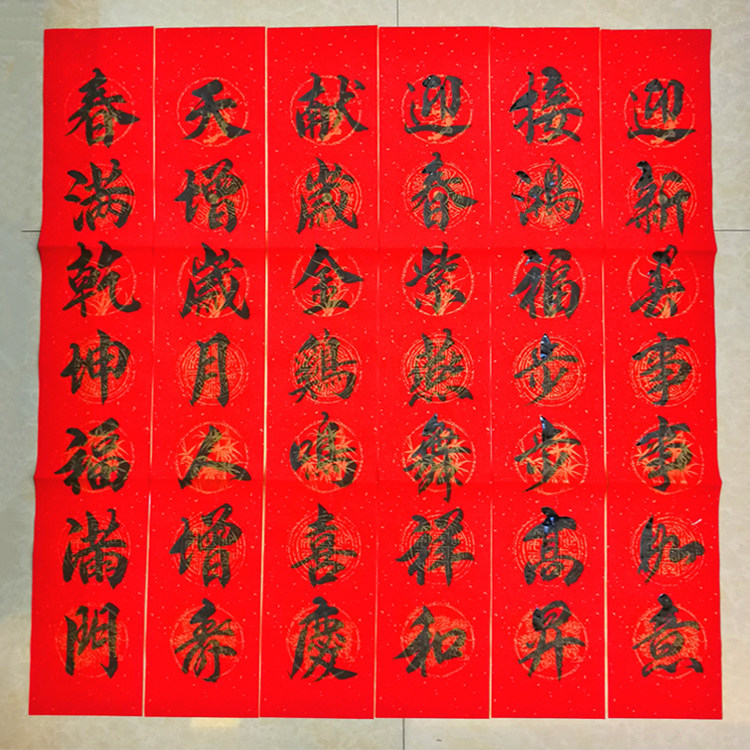 迎新春事事如意
接鴻福步步高昇
迎春紫燕舞祥和
献歲金鷄鳴喜慶
天增歲月人增壽
春满乾坤福满門